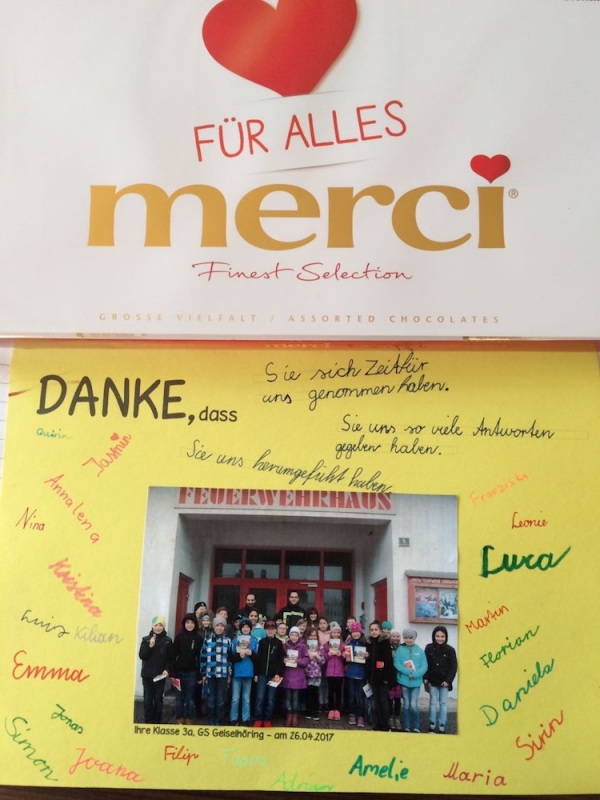 FÜR ALLES
merci®
Finest Selection
GROSSE VIELFALT / ASSORTED CHOCOLATES
DANKE, dass
Sie sich Zeit für
uns genommen haben.
Sie uns so viele Antworten
gegeben haben.
Sie uns herumgeführt haben
Quirin
Jasmin
Franziska
Annalena
Nina
Leonie
Luca
Kristina
Martin
Luis
Kilian
Florian
Emma
Daniela
Jonas
Sirin
Simon
Joana
Filip
Adrian
Amelie
Maria
FEUERWEHRHAUS
Ihre Klasse 3a, GS Geiselhöring - am 26.04.2017